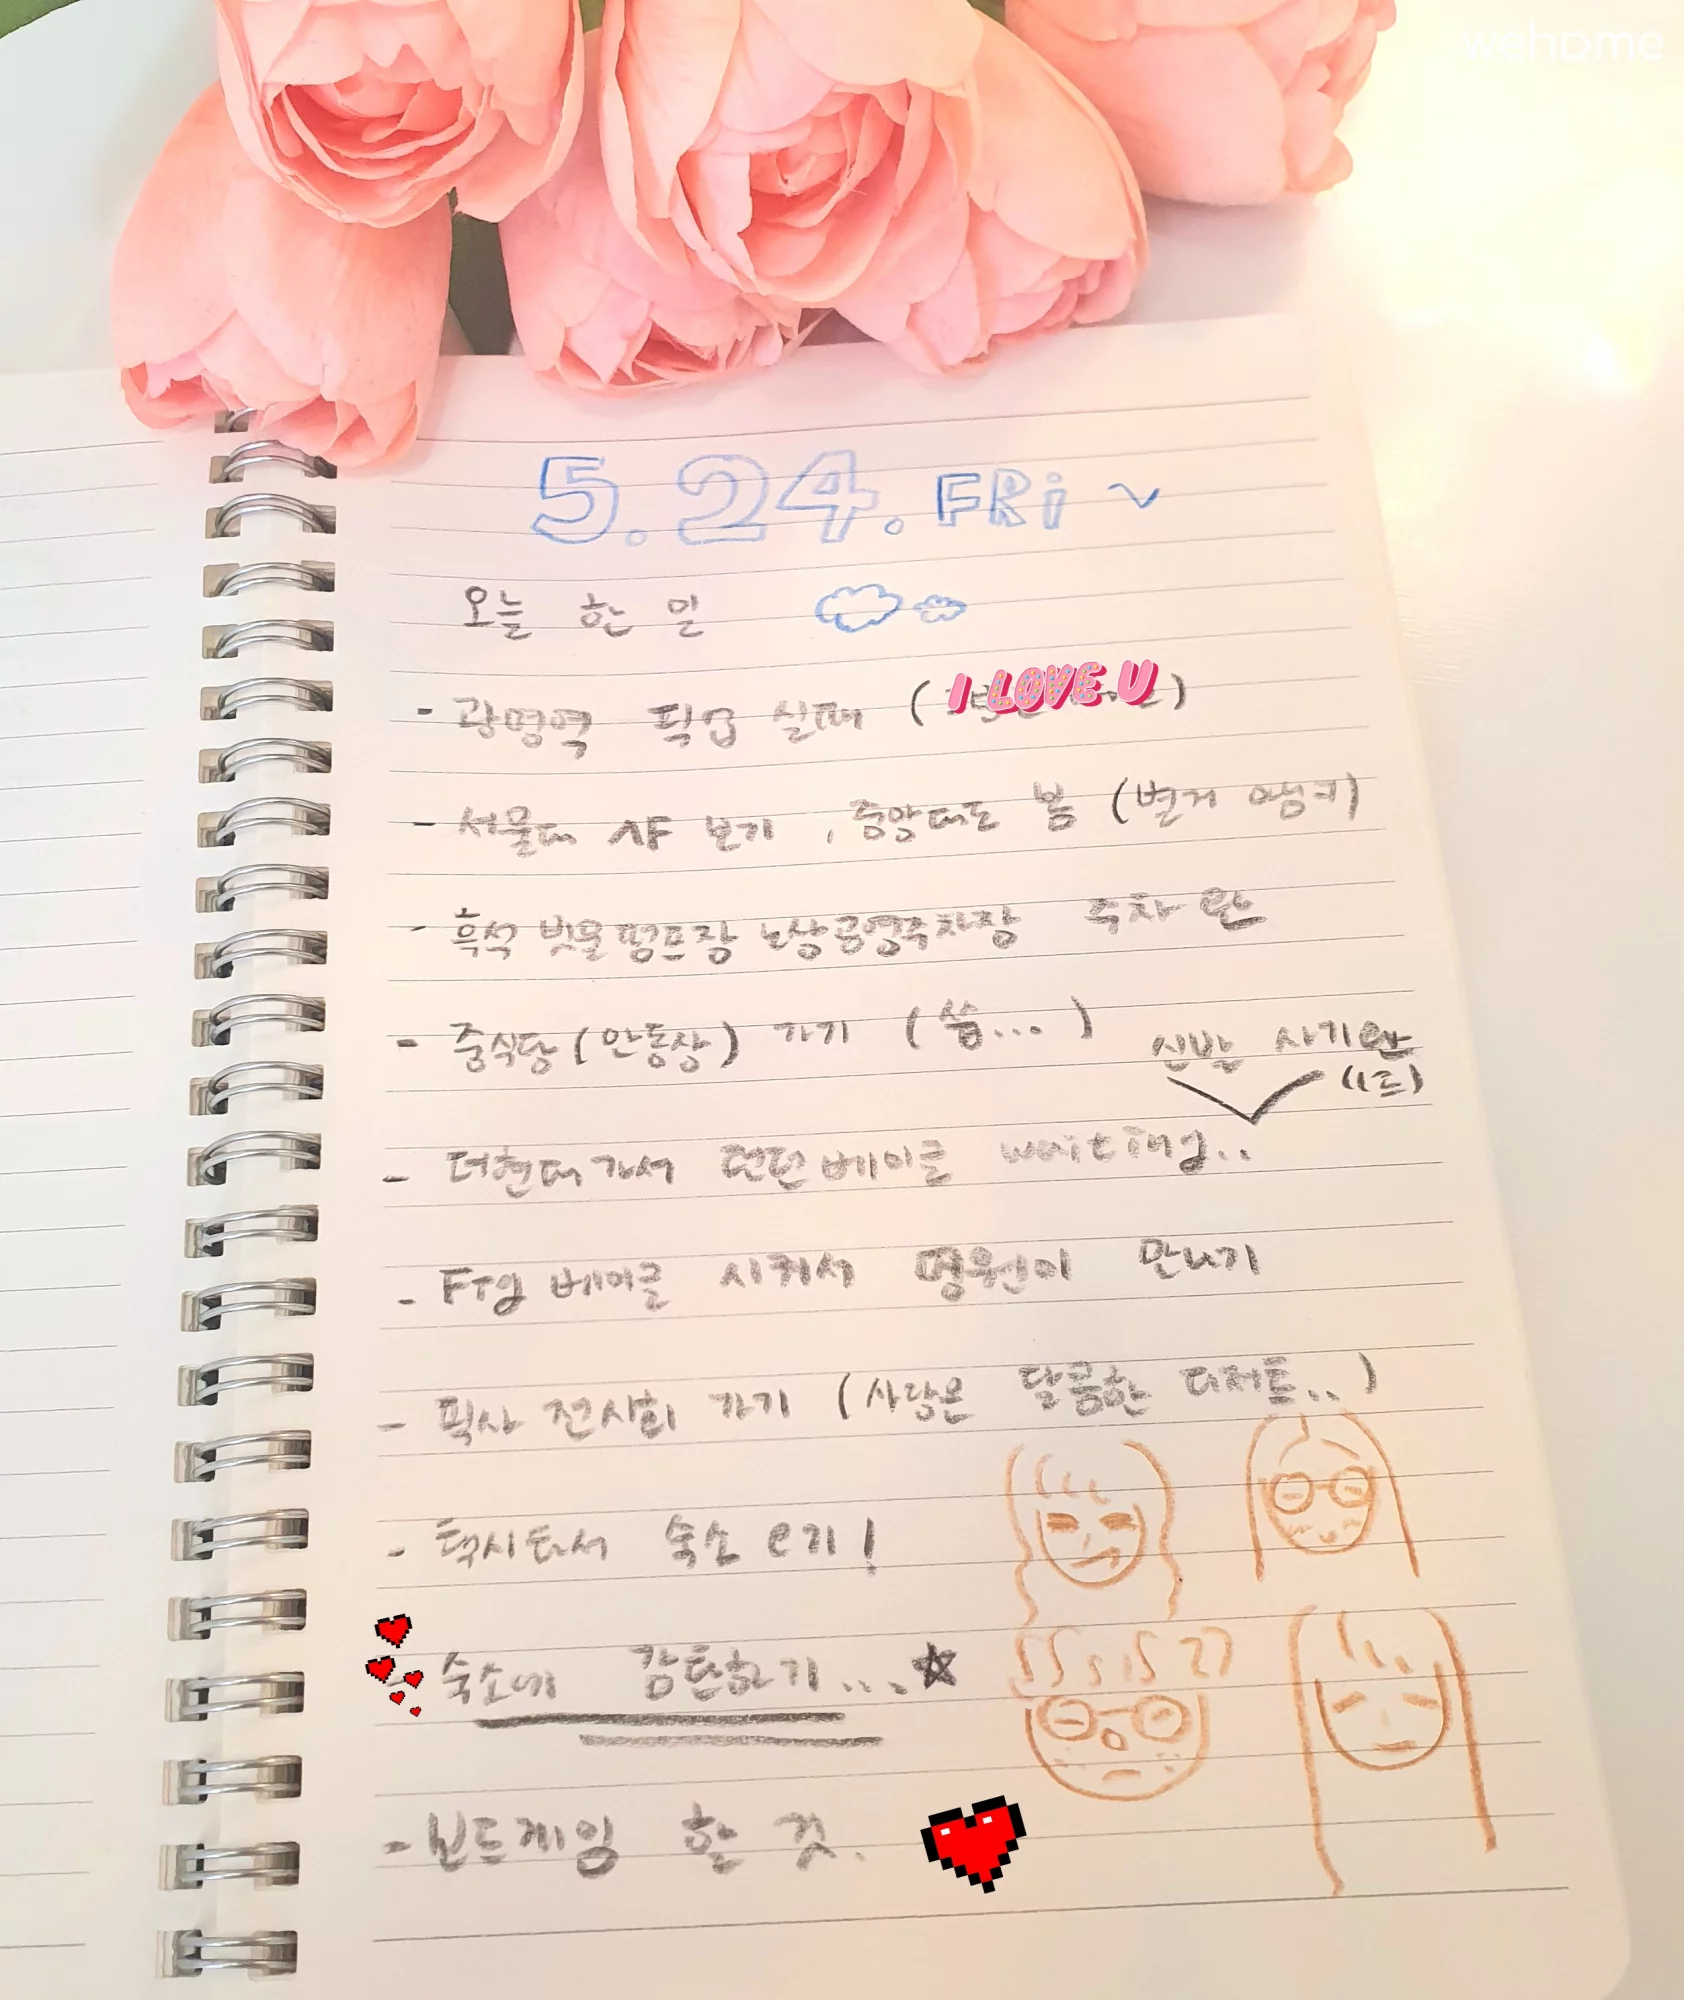 wehome
5.24. FRi ~
오늘 한 일
- 광명역 픽업 실패 ( I LOVE U )
- 서울대 샤 보기, 중앙대도 봄 (별거 없긔)
- 흑석 빗물펌프장 노상공영주차장 주차 완
- 중식당 (안동장) 가기 ( 씁... )
신발 사기 완
(1드)
- 더현대 가서 런던베이글 waiting..
- FTg 베이글 시켜서 명원이 만나기
- 픽사 전시회 가기 (사랑은 달콤한 디저트..)
- 택시타서 숙소 오기!
- 숙소에 감탄하기...☆
- 보드게임 할 것.